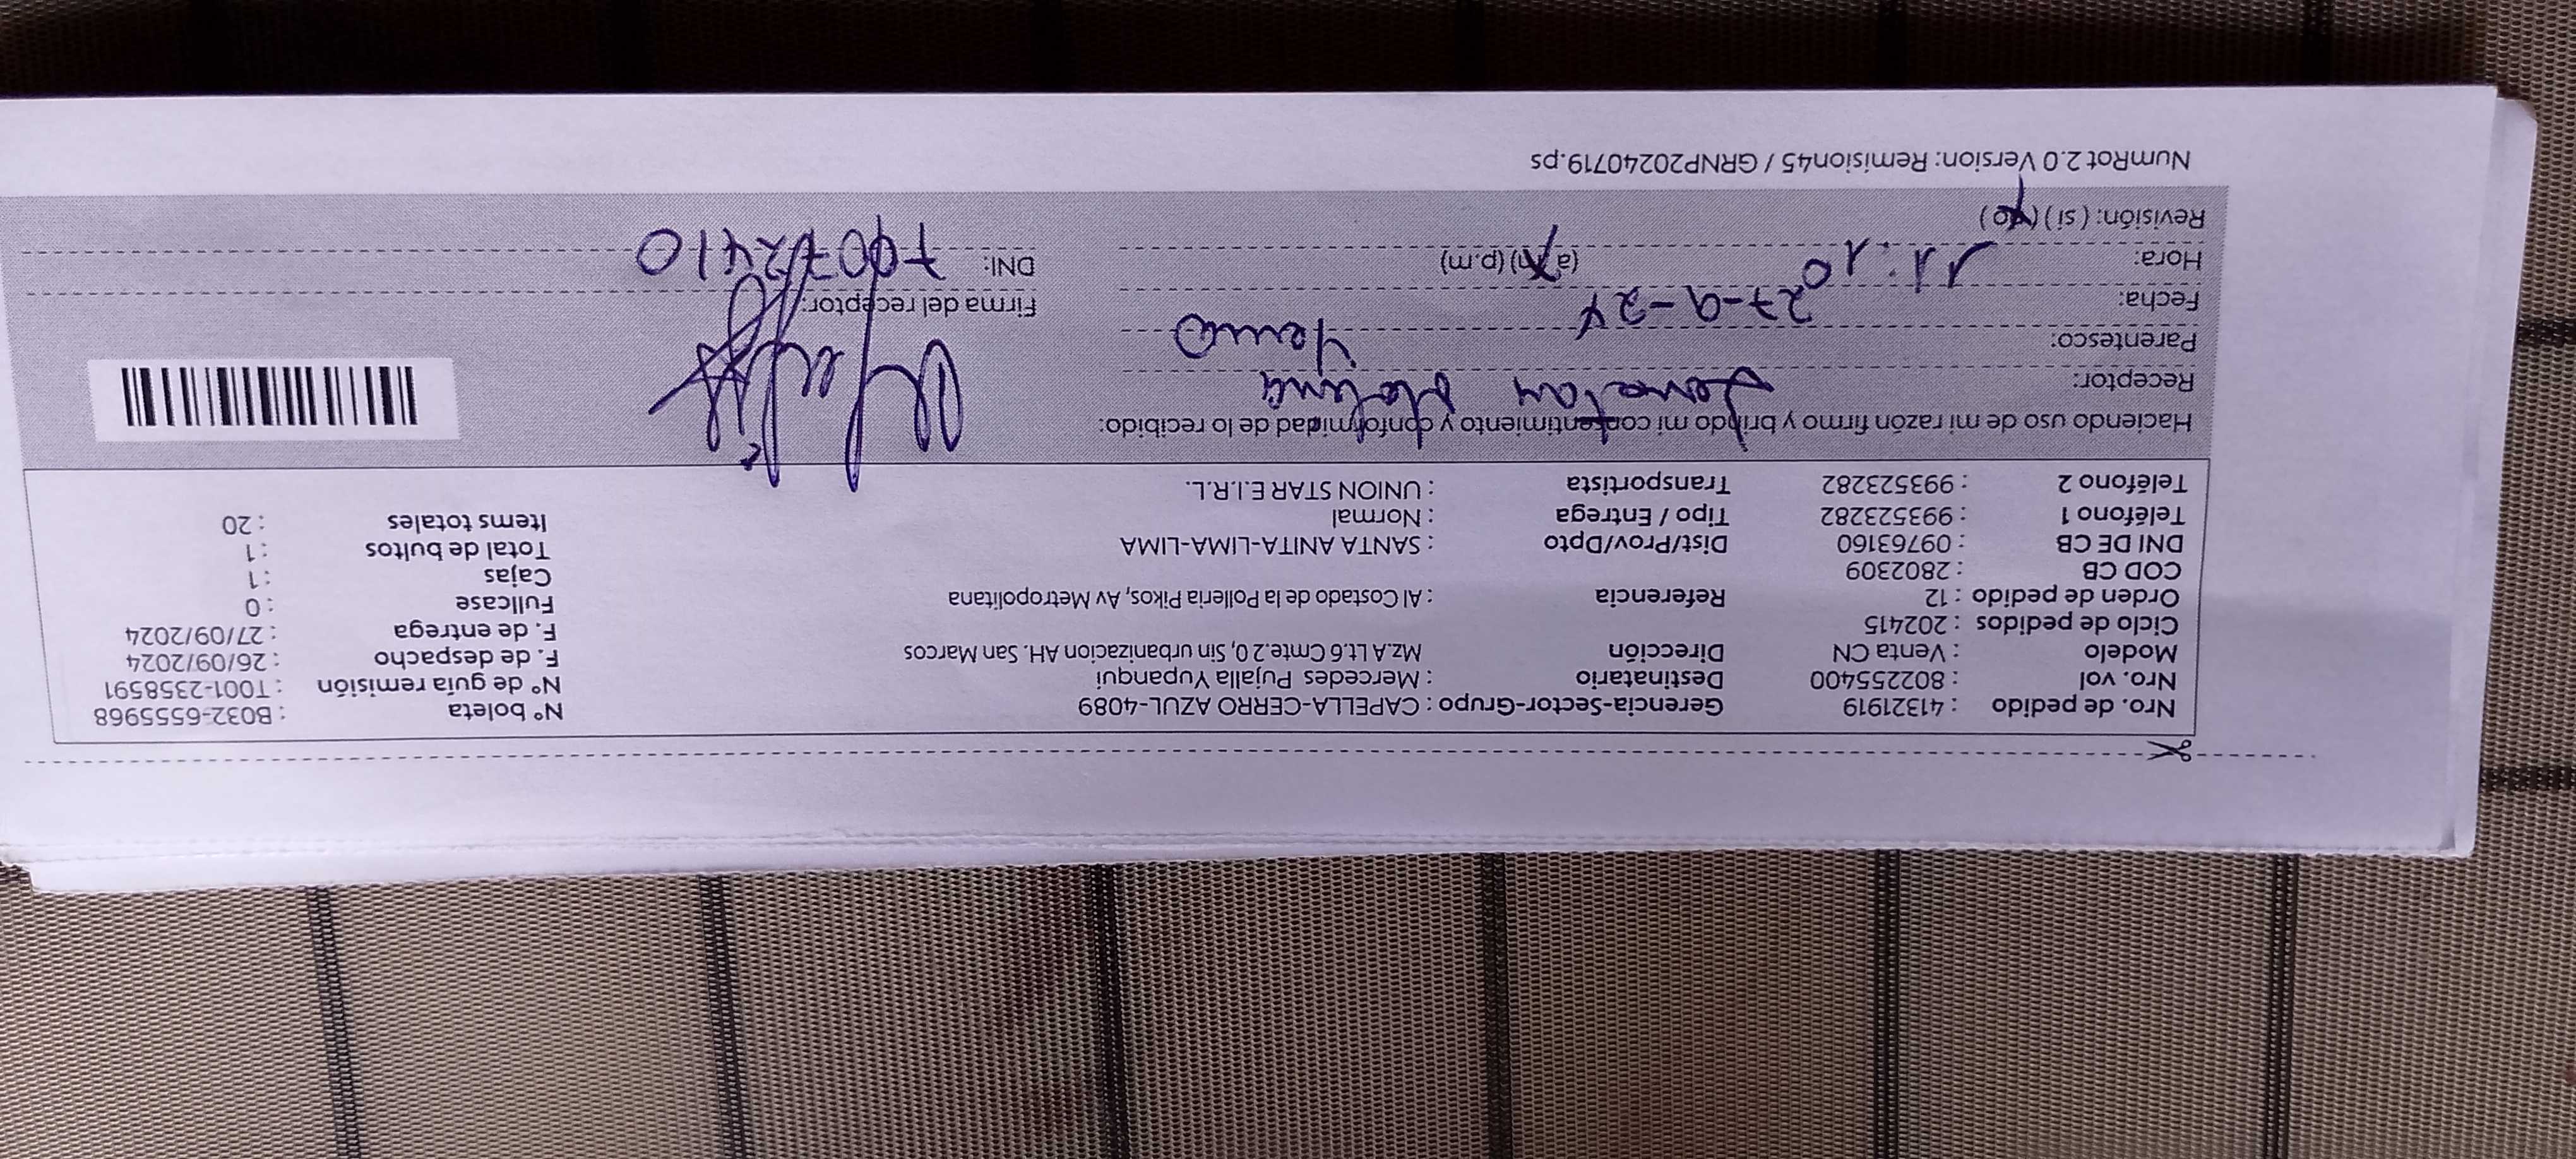 Nro. de pedido : 41321919 Gerencia-Sector-Grupo : CAPELLA-CERRO AZUL-4089 N° boleta : B032-6555968
Nro. vol : 802255400 Destinatario : Mercedes Pujalla Yupanqui N° de guía remisión : T001-2358591
Modelo : Venta CN Dirección Mz.A Lt.6 Cmte.20, Sin urbanizacion AH. San Marcos F. de despacho : 26/09/2024
Ciclo de pedidos : 202415 F. de entrega : 27/09/2024
Orden de pedido : 12 Referencia : Al Costado de la Polleria Pikos, Av Metropolitana Fullcase : 0
COD CB : 2802309 Cajas : 1
DNI DE CB : 09763160 Dist/Prov/Dpto : SANTA ANITA-LIMA-LIMA Total de bultos : 1
Teléfono 1 : 993523282 Tipo / Entrega : Normal Items totales : 20
Teléfono 2 : 993523282 Transportista : UNION STAR E.I.R.L.
Haciendo uso de mi razón firmo y brindo mi consentimiento y conformidad de lo recibido:
Receptor: Molina
Parentesco: Yerno
Fecha: 27-9-24 Firma del receptor:
Hora: 11:10 (a.m) (p.m) DNI:
Revisión: ( si ) ( no )
NumRot 2.0 Version: Remision45 / GRNP20240719.ps